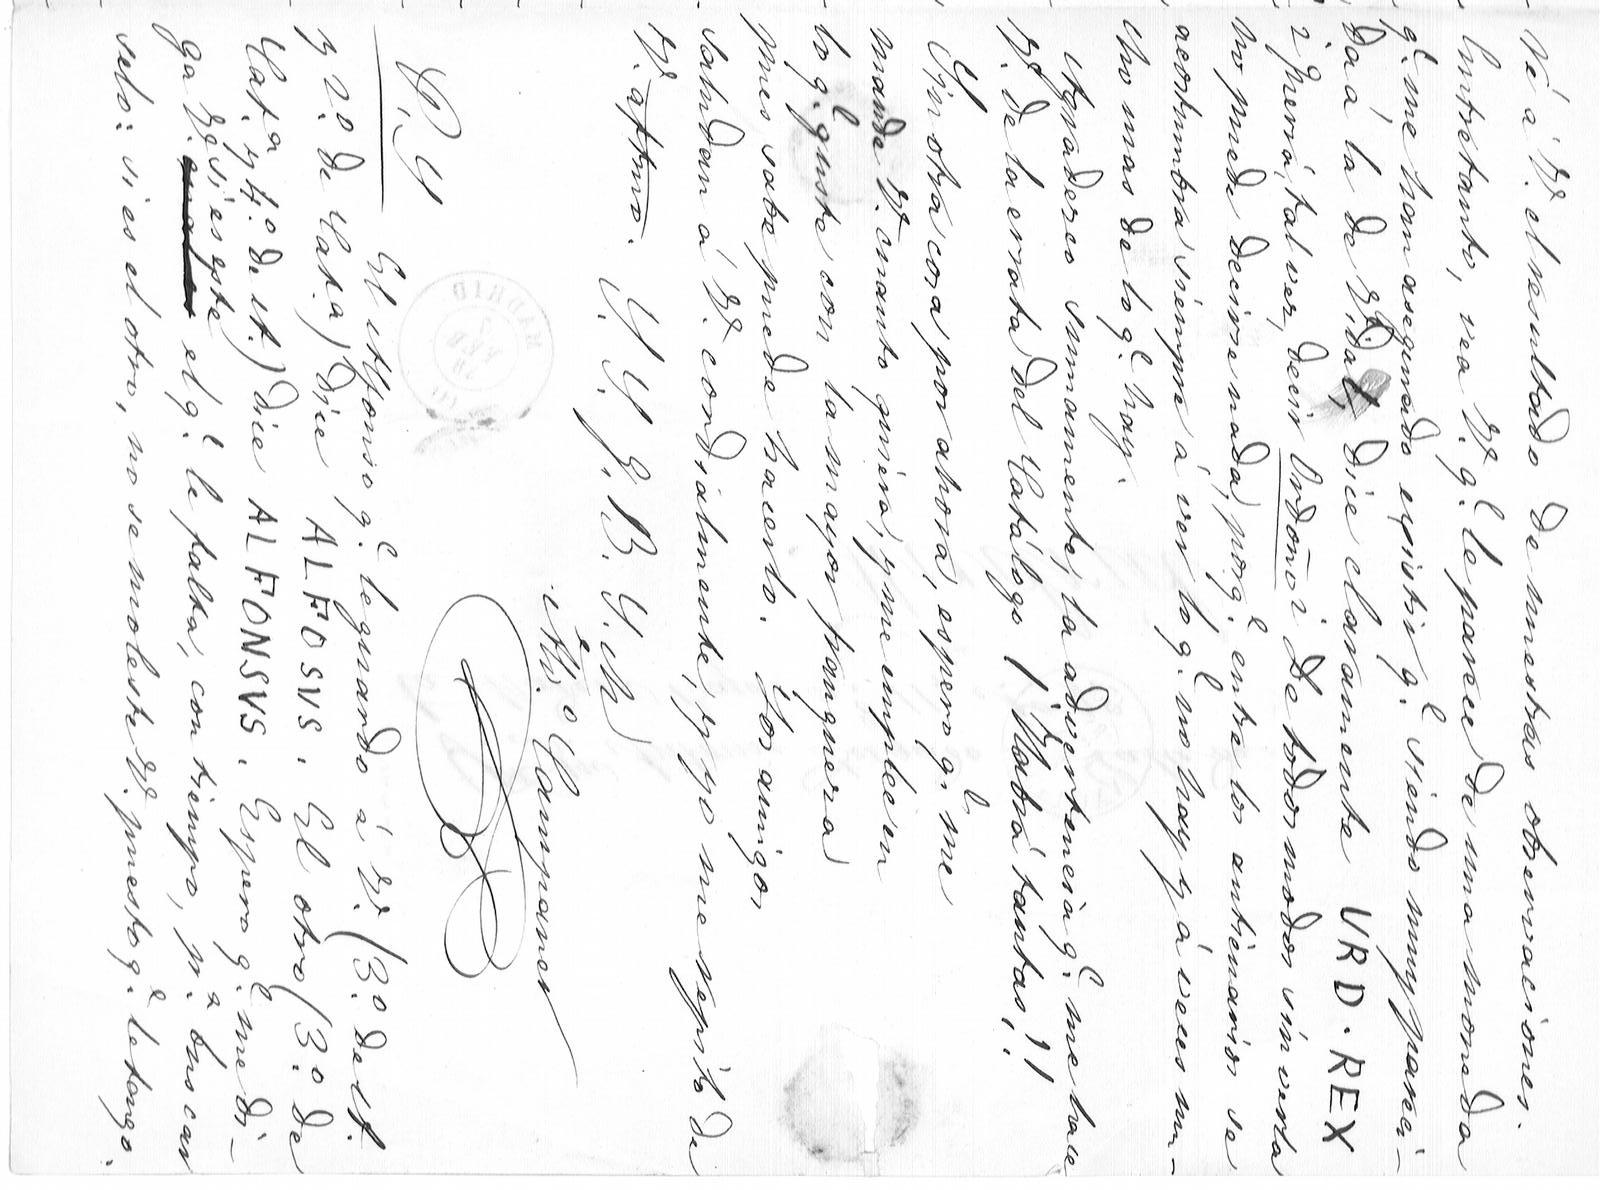 Vé á V. el resultado de nuestras observaciones.
Entretanto, vea V. qe. le parece de una moneda
qe. me han asegurado existir, qe. siendo muy pareci-
da á la de Vidal, dice claramente VRD. REX
¿querrá, tal vez, decir Ordoño? De todos modos sin verla
no puede decirse nada, porqe. entre los anticuarios se
acostumbra siempre á ver lo qe. no hay y á veces mu-
cho mas de lo qe. hay.
Agradezco sumamente, la advertencia qe. me hace
V. de la errata del Catálogo ¡Habrá tantas!!
Sin otra cosa por ahora, espero qe. me
mande V. cuanto quiera, y me emplée en
lo qe. guste con la mayor franqueza
pues sabe puede hacerlo. Los amigos
saludan á V. cordialmente, y yo me repito de
V. attmo. S. S. S. Q. B. S. M.
Alv.o Campaner
P. S.
El Alfonso qe. le guardo á V. (3.o de A.
y 2.o de Cat.a) dice ALFOSVS. El otro (3.o de
Cat.a y 4.o de A.) dice ALFONSVS. Espero qe. me di-
ga V. si es este el qe. le falta, con tiempo, pa. buscar
selo: si es el otro, no se moleste V. puesto qe. le tengo.
MADRID
FEB